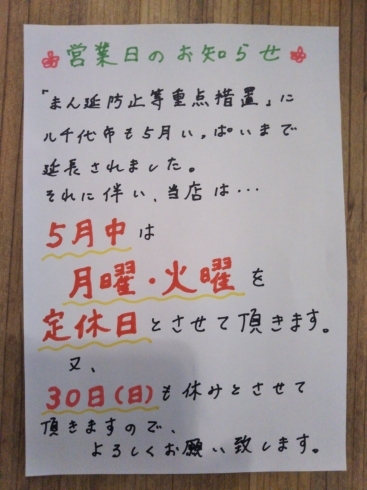 営業日のお知らせ
「まん延防止等重点措置」に
八千代市も5月いっぱいまで
延長されました。
それに伴い、当店は…
5月中は
月曜・火曜を
定休日とさせて頂きます。
又、
30日(日)も休みとさせて
頂きますので、
よろしくお願い致します。